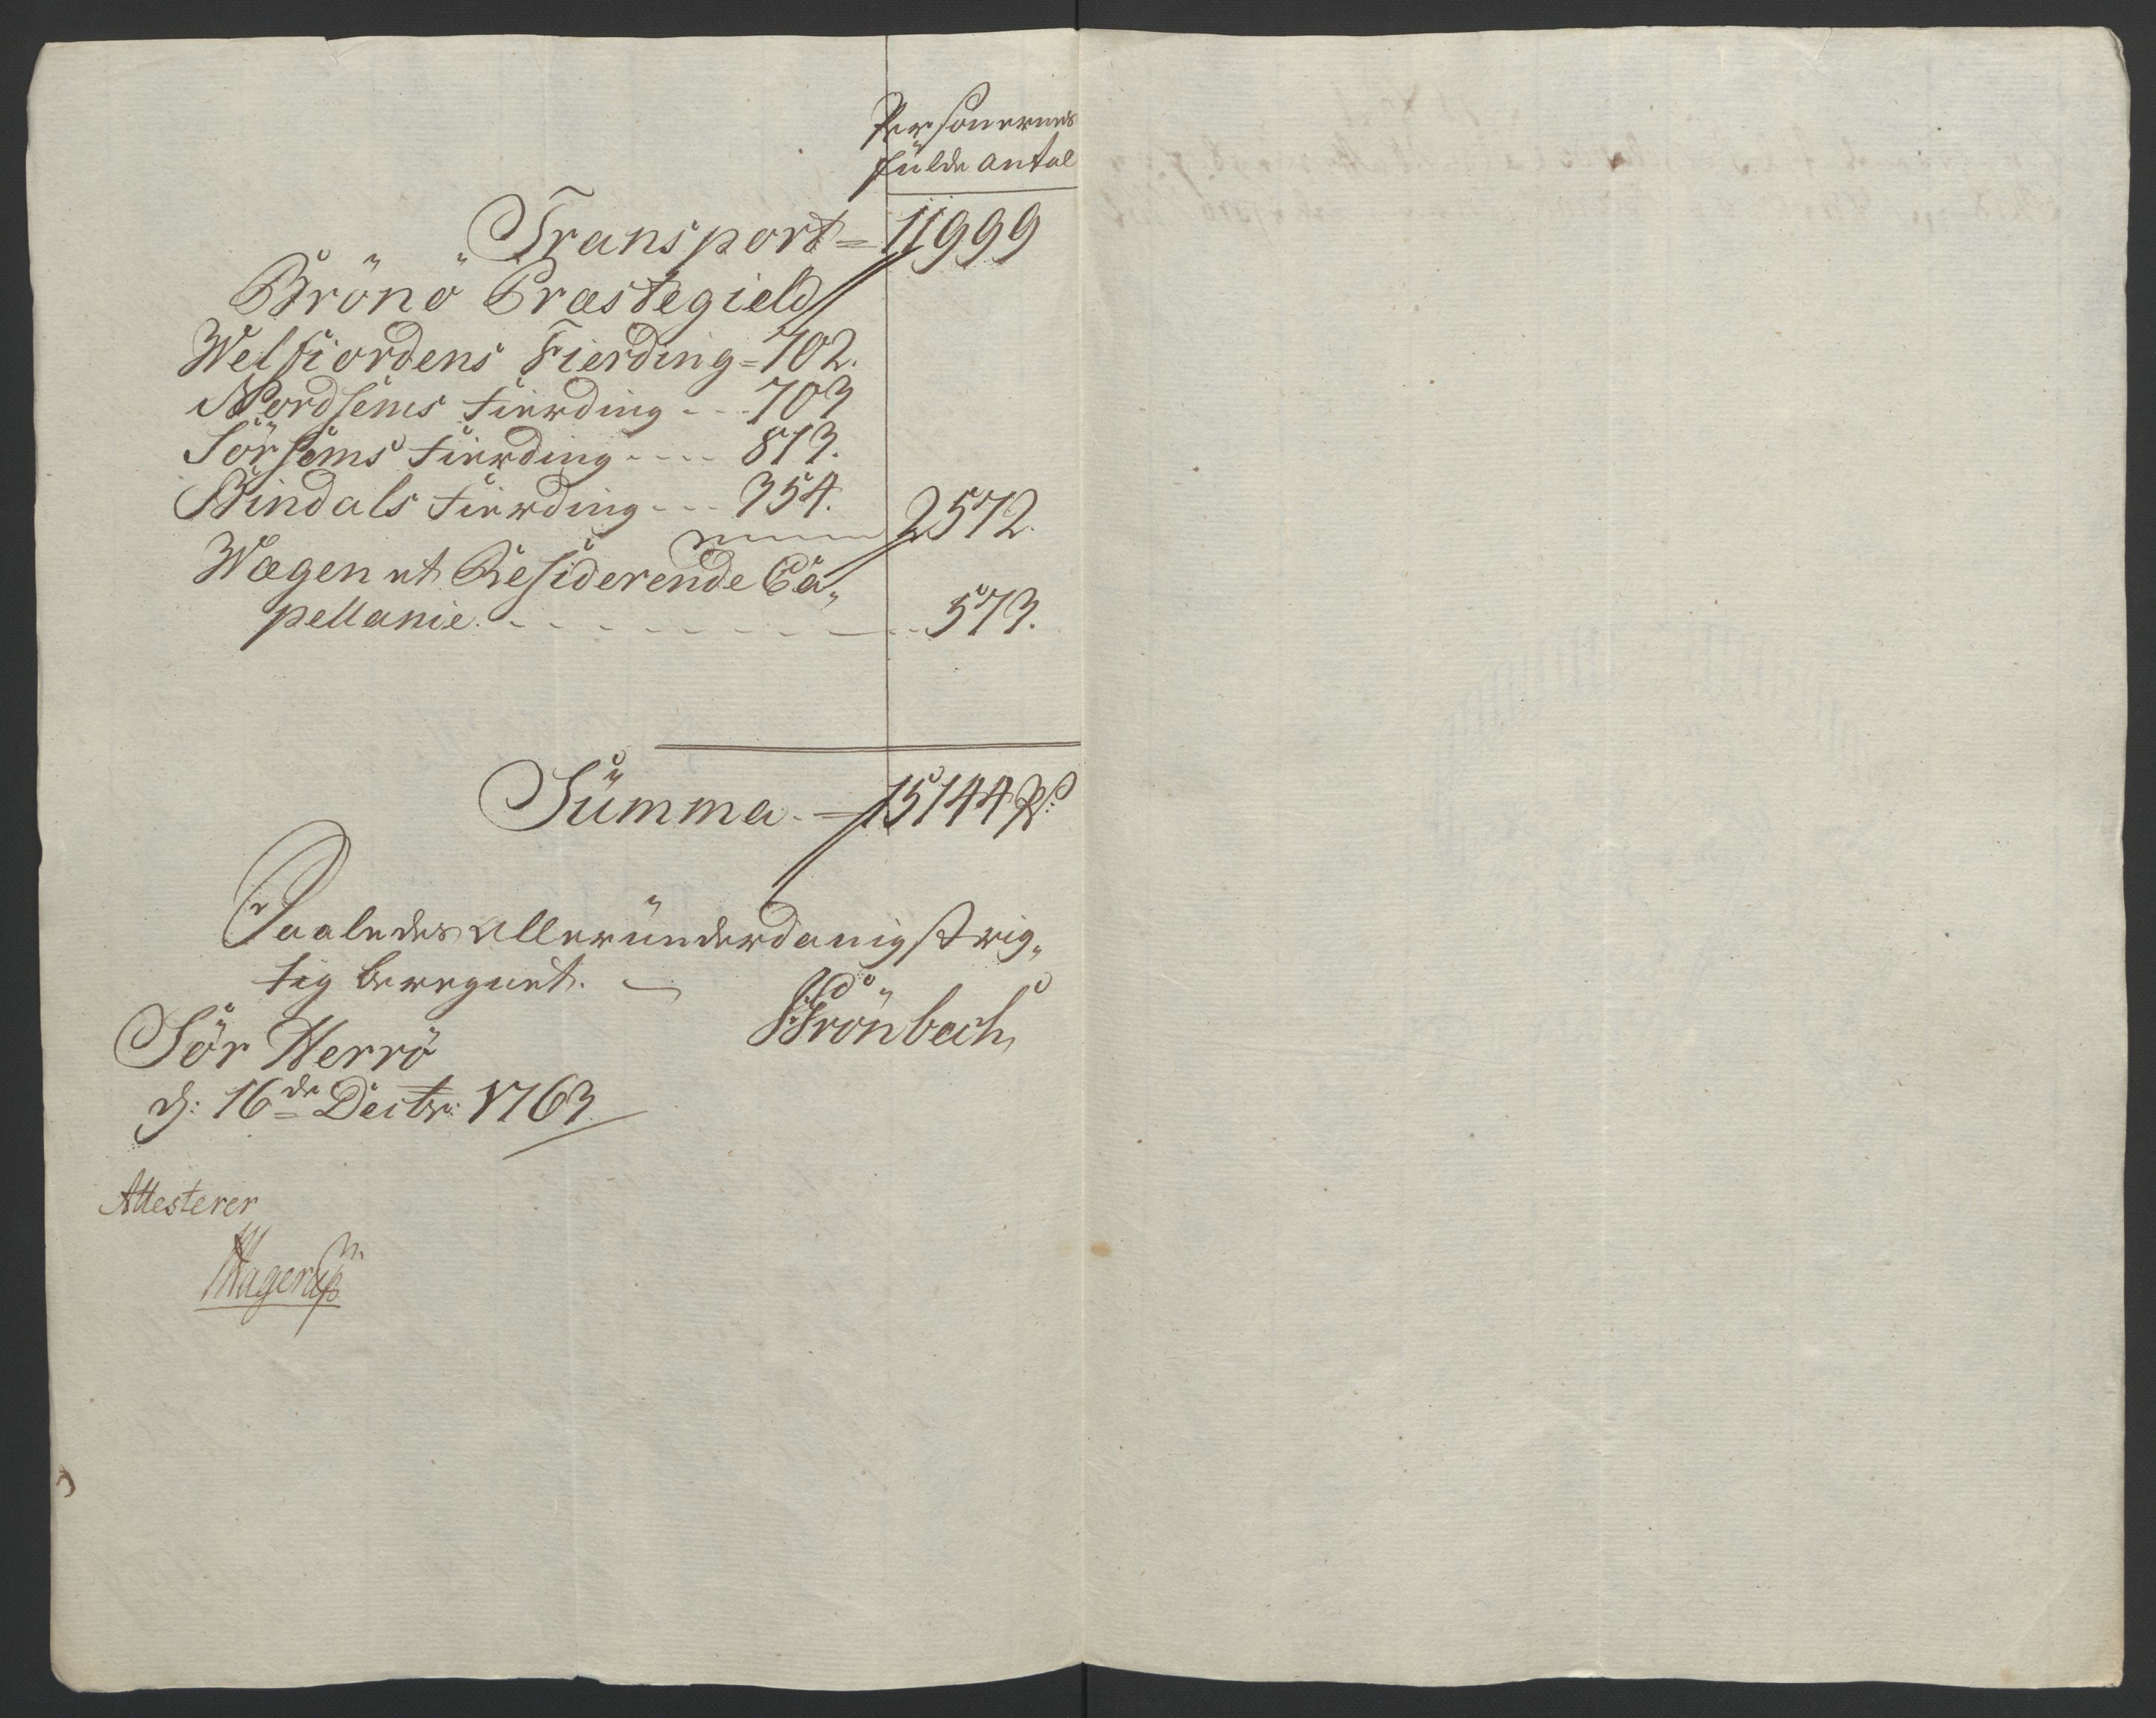 Personernes
fulde antal
Transport = 11999
Brönö Præstegield
Welfiordens Fierding = 702.
Nordhems Fierding - - - 703
Sörhems Fierding - - - - 813.
Bindals Fierding - - - 354. 2572.
Wægen ut Residerende Ca„
pellanie. - - - - - - - - - 573.
Summa. — 15144
Saaledes allerunderdanigst rig„
tig beregnet. —
Brönbech
Sör Herrö
d: 16de Decbr: 1763
Attesterer
Hagerup